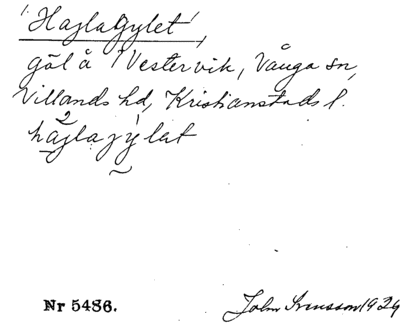 Hajlagylet
göl å Vestervik, Vånga sn,
Villands hd, Kristianstads l.
hajlajylet
Nr 5486.
John Svensson 1929